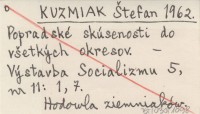 KUZMIAK Štefan 1962.
Popradské skúsenosti do
všetkých okresov. –
Výstavba Socializmu 5,
nr 11: 1, 7.
Hodowla ziemniaków.